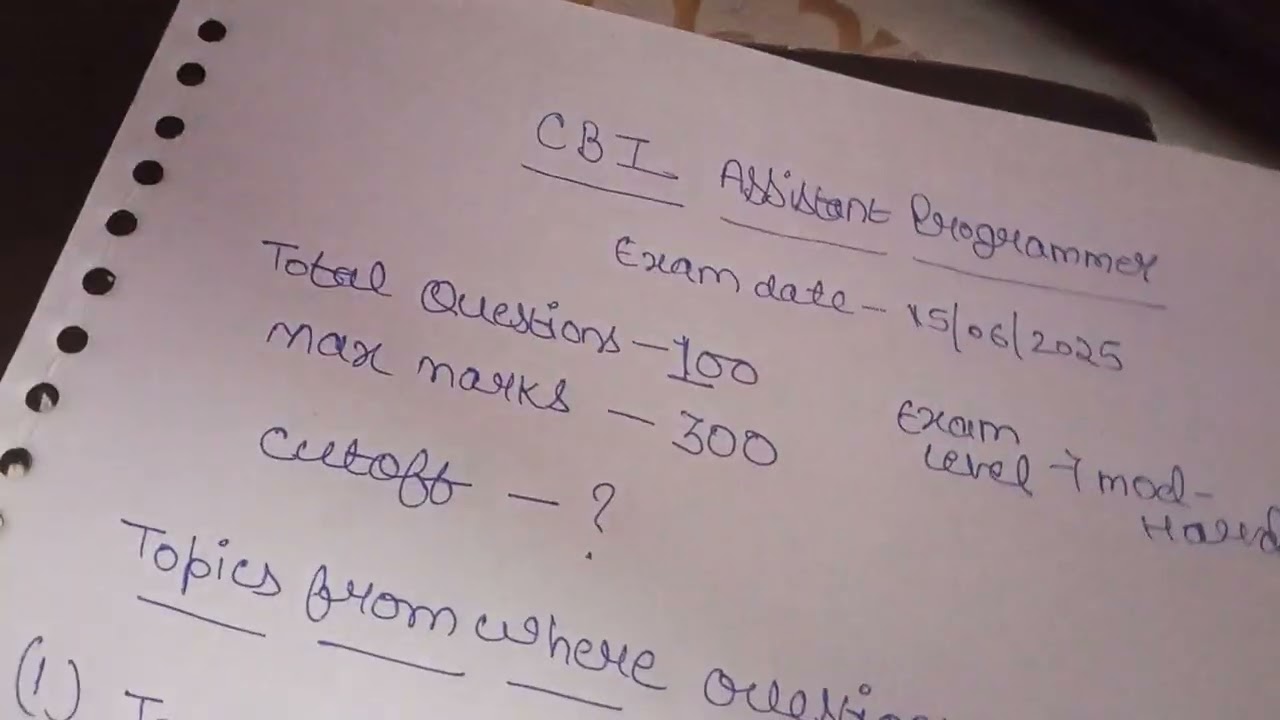 CBI Assistant Programmer
Exam date - 15/06/2025
Total Questions - 100
Max marks - 300
Exam level → mod-Hard
Cutoff - ?
Topics from where
(1)